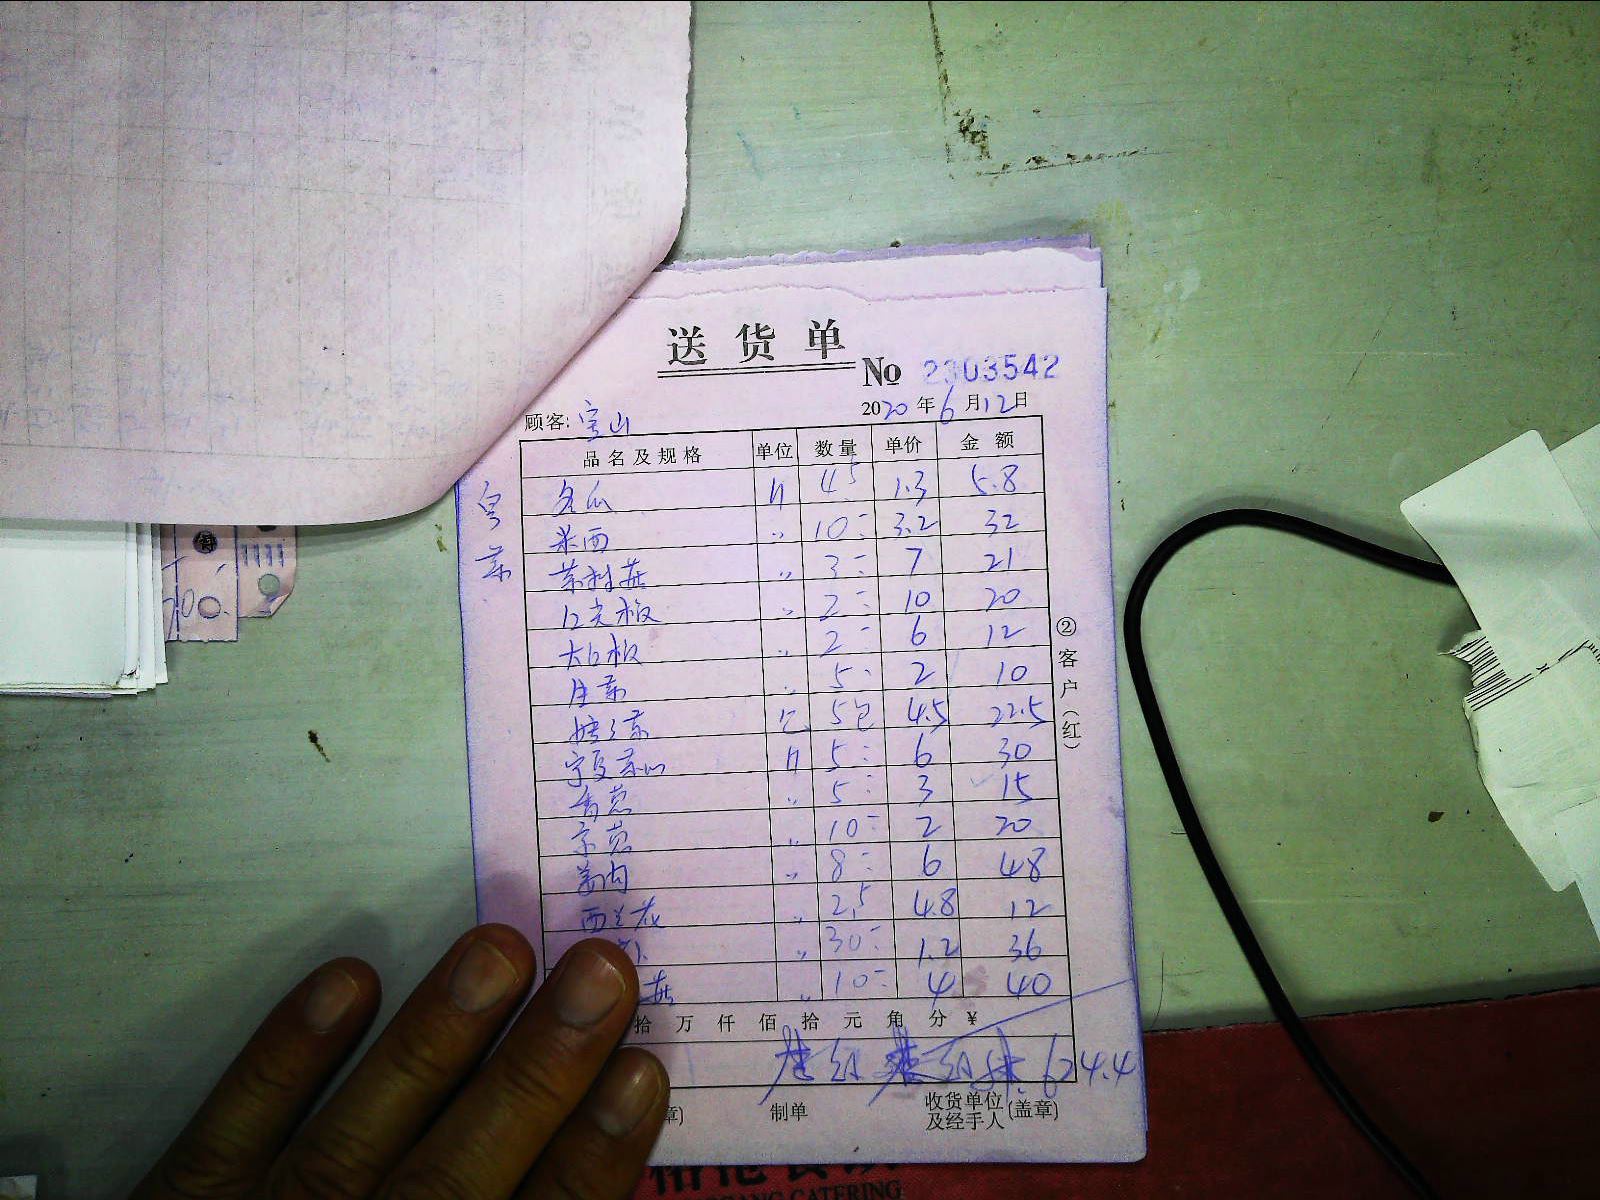 送货单
No 2303542
2020年6月12日
顾客: 宝山
品名及规格 单位 数量 单价 金额
冬瓜 斤 4.5 1.3 5.8
米西 〃 10- 3.2 32
茶树菇 〃 3- 7 21
口尖椒 〃 2- 10 20
大口椒 〃 2- 6 12
生菜 〃 5- 2 10
包 5包 4.5 22.5
宁夏菜心 斤 5- 6 30
香葱 〃 5- 3 15
京葱 〃 10- 2 20
姜肉 〃 8- 6 48
西兰花 〃 2.5 4.8 12
〃 30- 1.2 36
菇 〃 10- 4 40
拾 万 仟 佰 拾 元 角 分 ¥
624.4
章) 制单 收货单位及经手人(盖章)
②客户(红)
CATERING